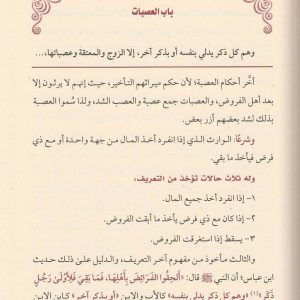 باب العصبات
وهم كل ذكر يدلي بنفسه أو بذكر آخر، إلا الزوج والمعتقة وعصباتها،...
أخَّر أحكام العصبة؛ لأن حكم ميراثهم التأخير، حيث إنهم لا يرثون إلا
بعد أهل الفروض، والعصبات جمع عصبة والعصب الشد، ولذا سُموا العصبة
بذلك لشد بعضهم أزر بعض.
وشرعًا: الوارث الذي إذا انفرد أخذ المال من جهة واحدة أو مع ذي
فرض فيأخذ ما بقي.
وله ثلاث حالات تؤخذ من التعريف:
١- إذا انفرد أخذ جميع المال.
٢- إذا كان مع ذي فرض يأخذ ما أبقت الفروض.
٣- يسقط إذا استغرقت الفروض.
والثالث مأخوذ من مفهوم آخر التعريف، والدليل على ذلك حديث
ابن عباس: أن النبي ﷺ قال: «أَلْحِقُوا الْفَرَائِضَ بِأَهْلِهَا، فَمَا بَقِيَ فَلِأَوْلَى رَجُلٍ
ذَكَرٍ»(١) «وهم كل ذكر يدلي بنفسه» كالأب والابن «أو بذكر آخر» كابن الابن